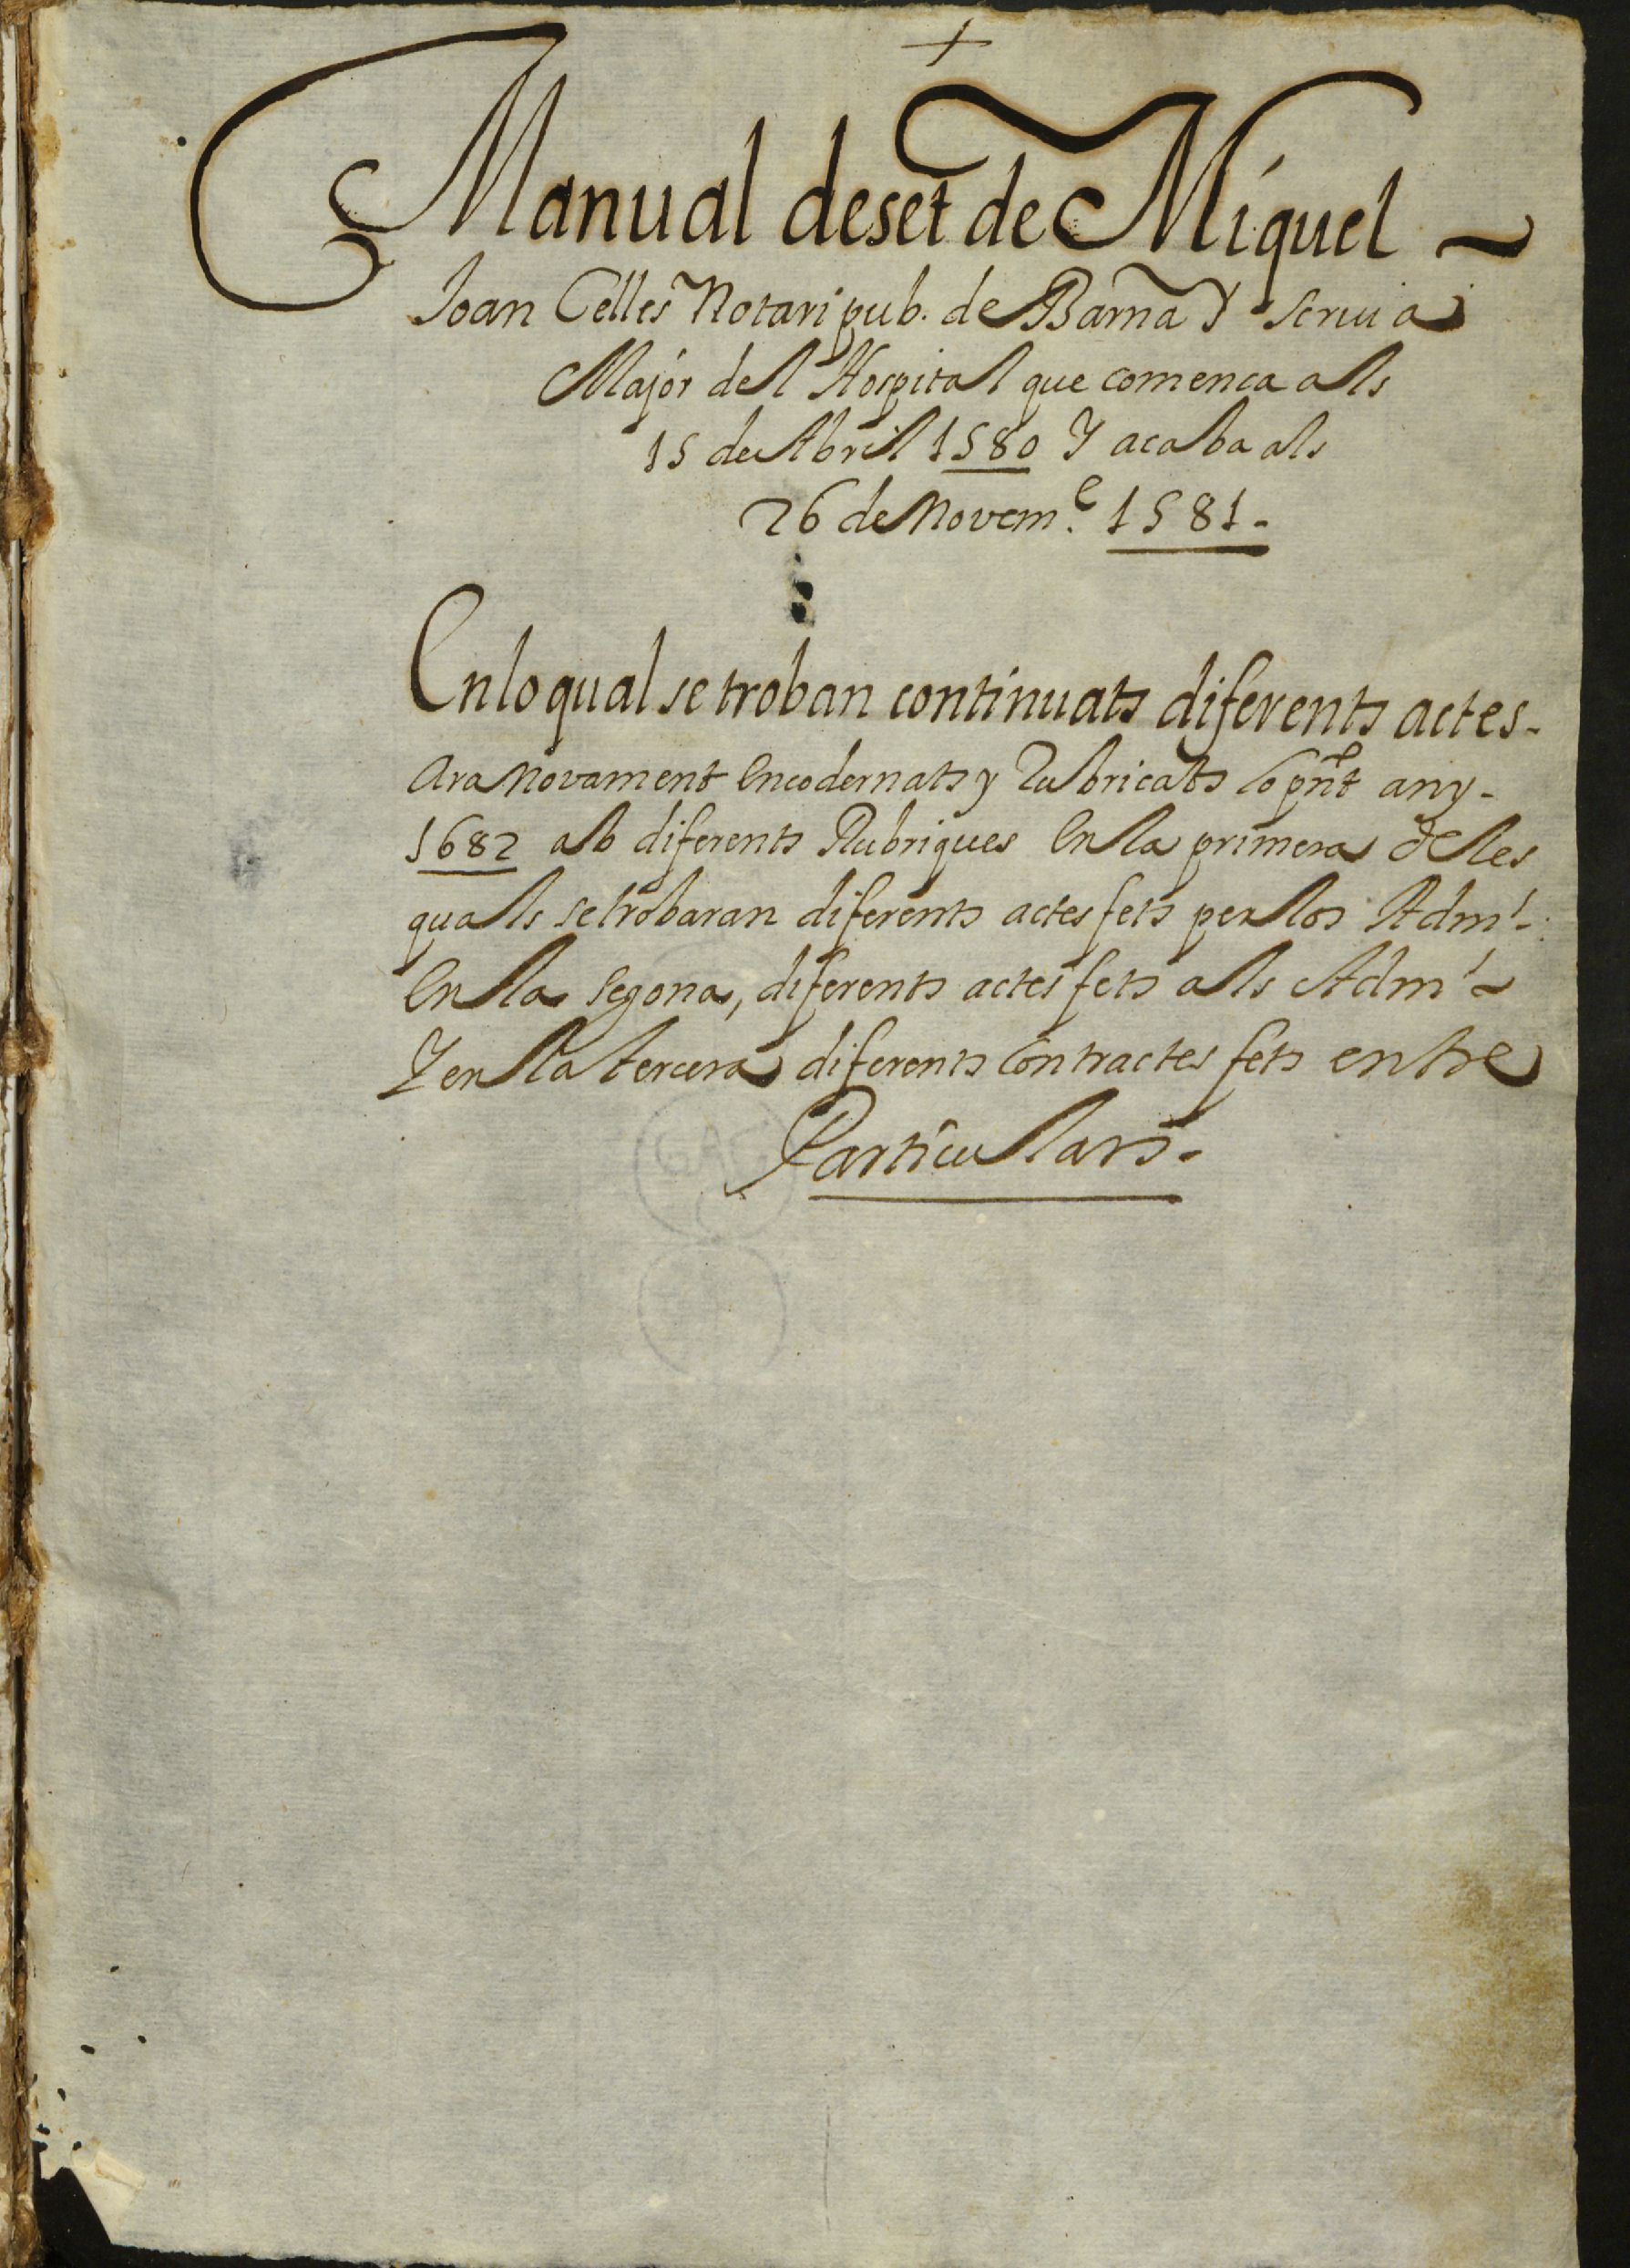 +
Manual deset de Miquel ~
Joan Celles Notari pub. de Barna Y scriva
Major del Hospital que comenca als
15 de Abril 1580 Y acaba als
26 de Novem.e 1581.
En lo qual se troban continuats diferents actes.
Ara novament encodernats y Rubricats lo pnt any.
1682 ab diferents Rubriques en la primera de les
quals se trobaran diferents actes fets per los Adm.
en la segona, diferents actes fets als Adm ~
Y en la tercera diferents contractes fets entre
Particulars.